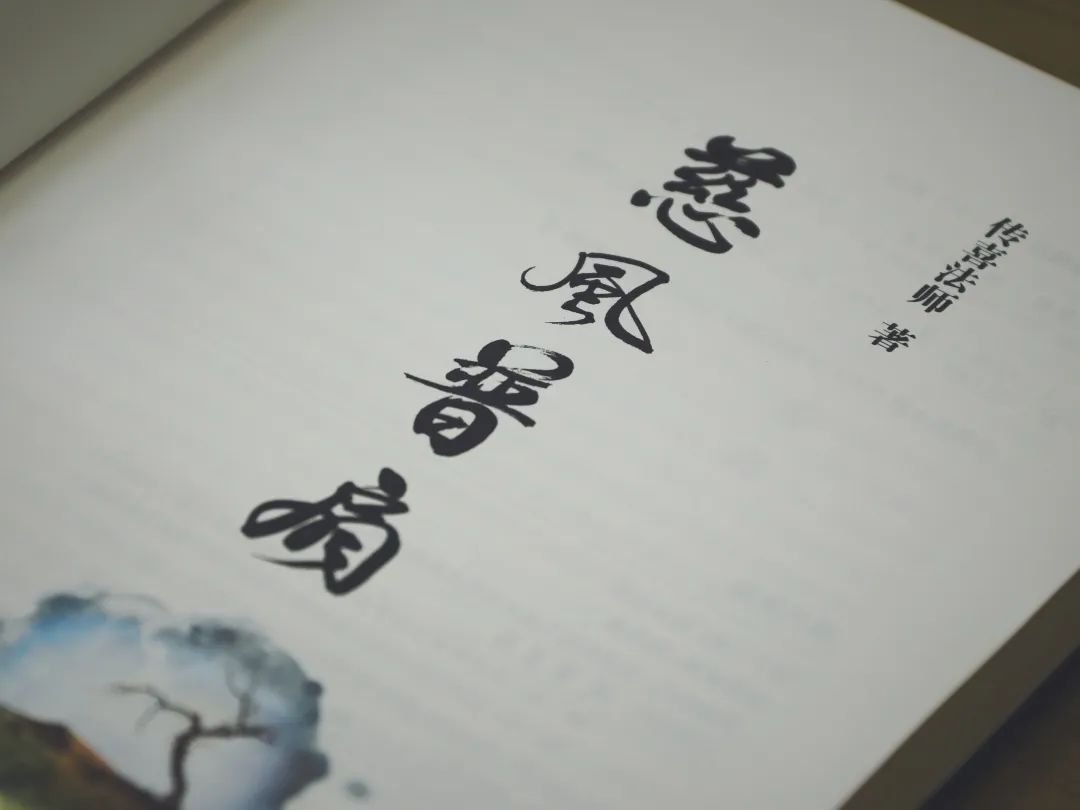 传喜法师 著
慈風普扇